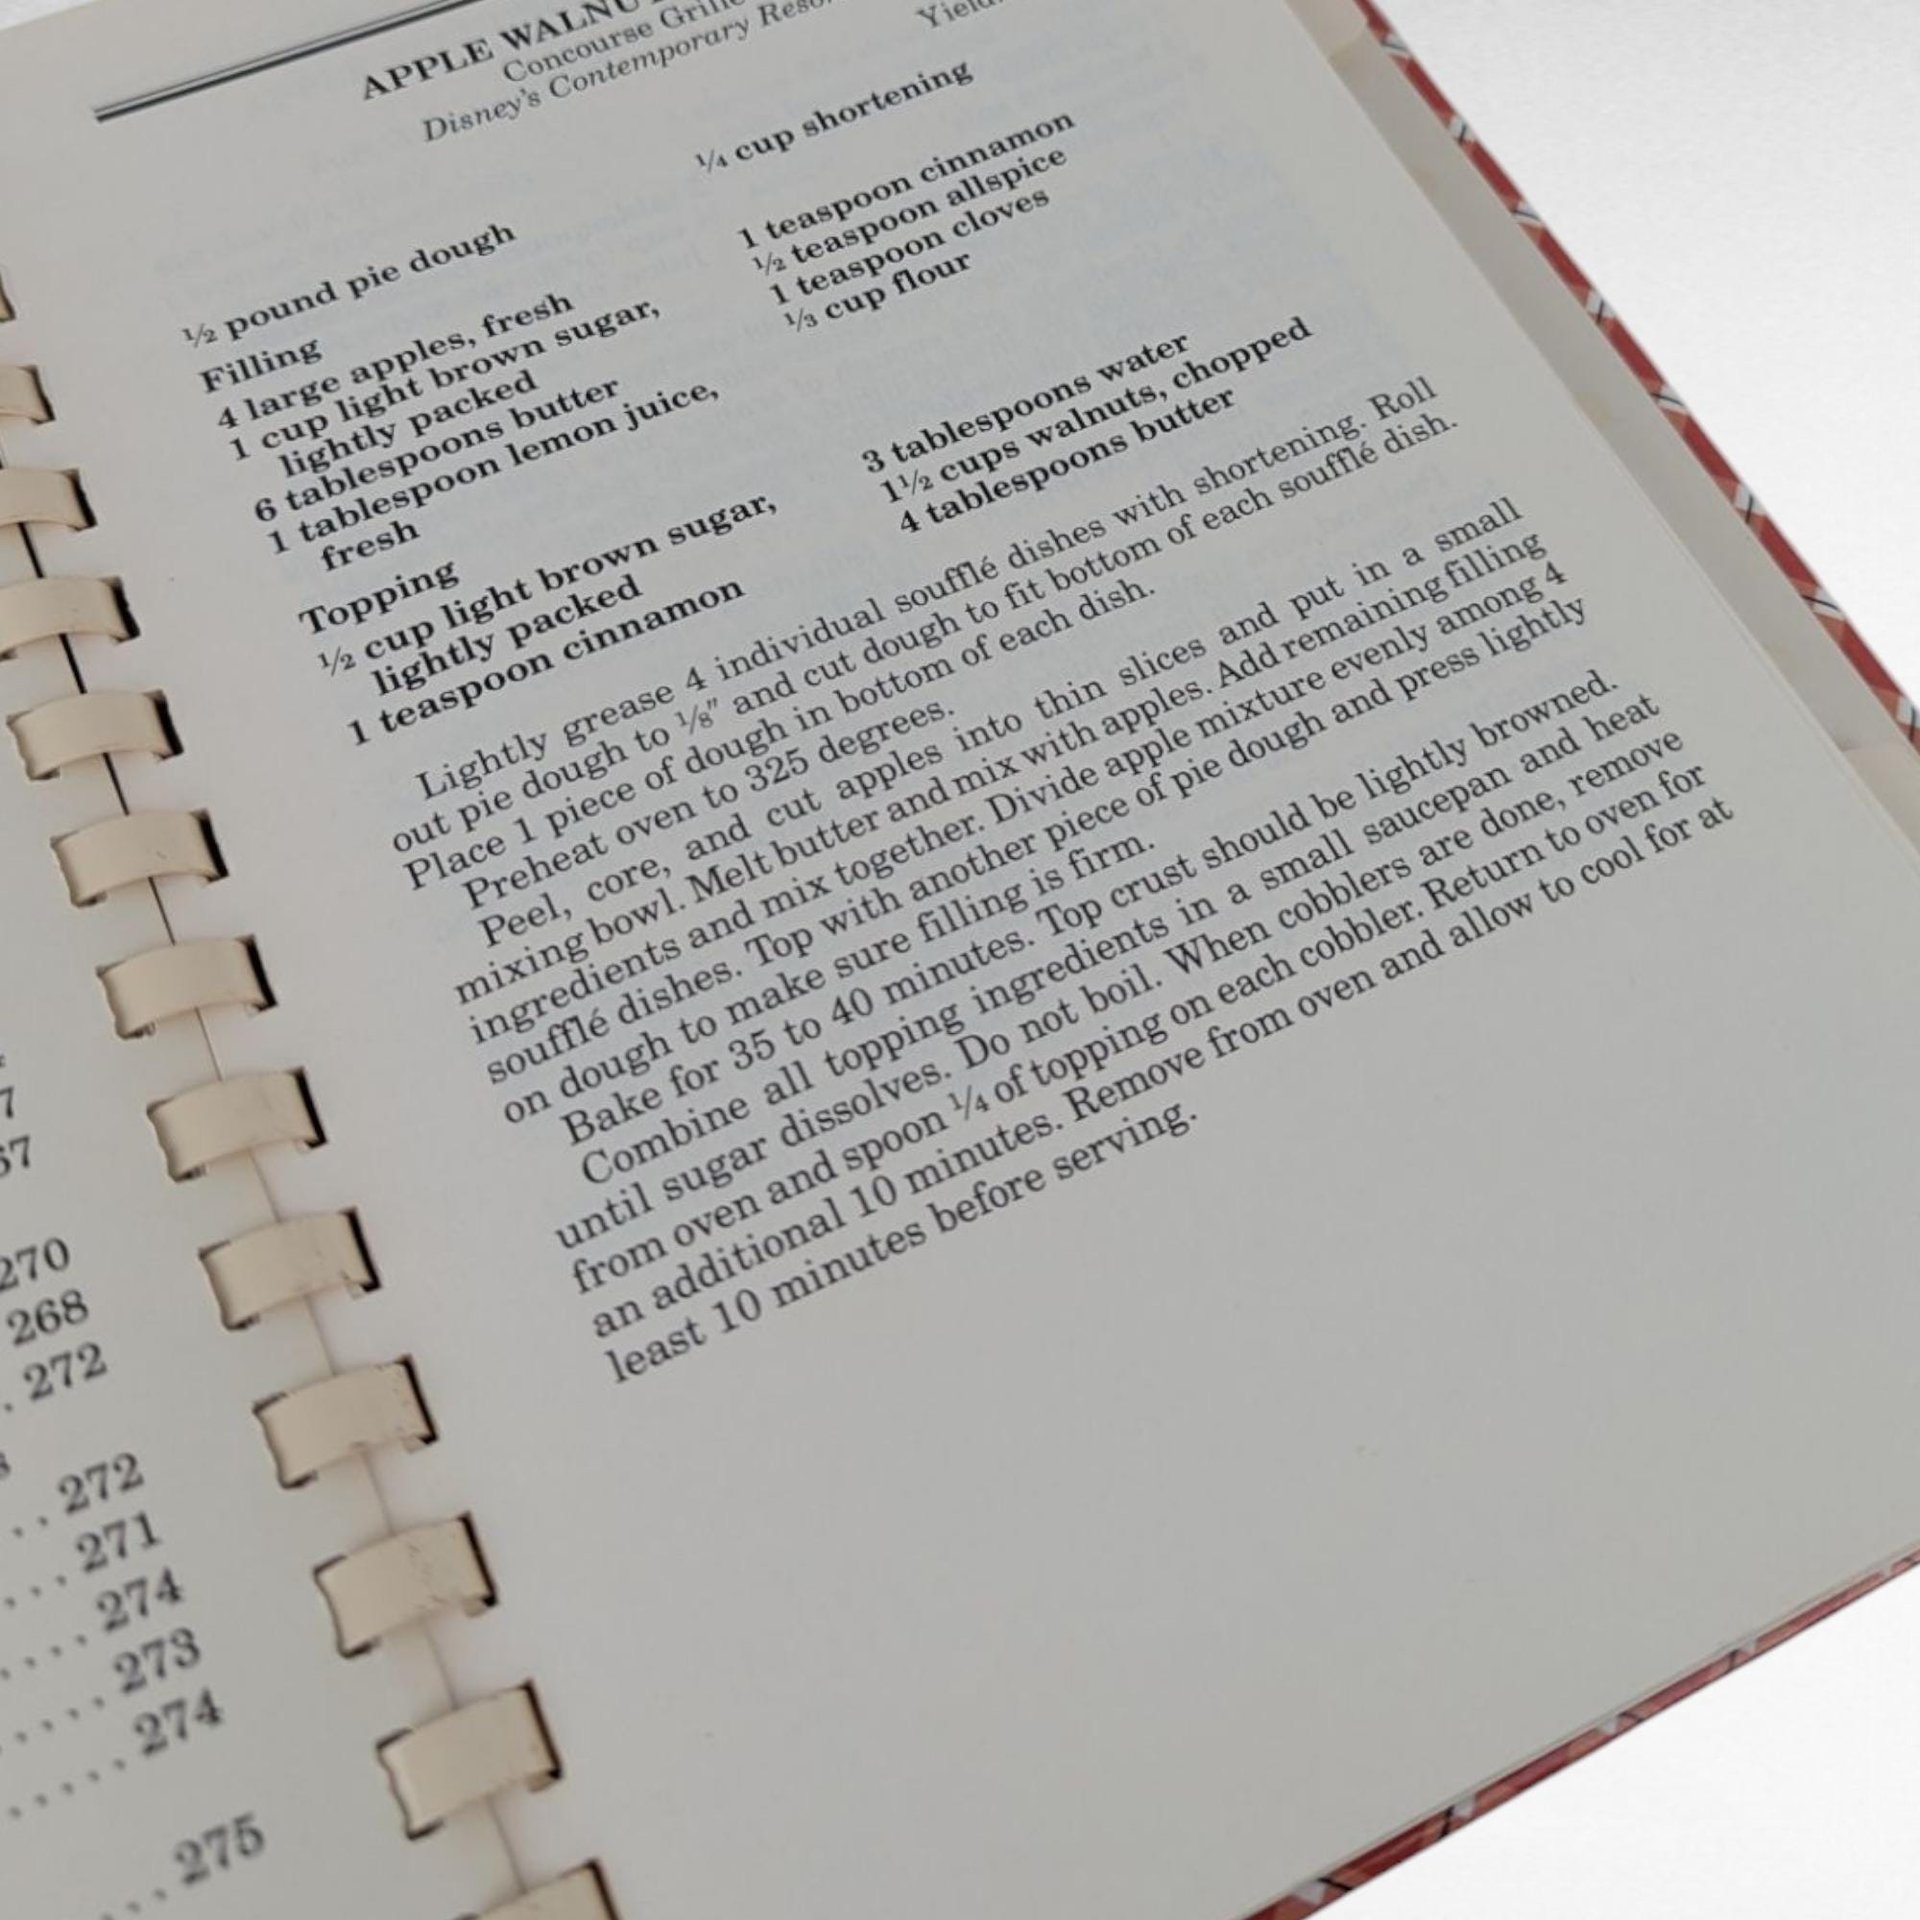 APPLE WALNU
Concourse Grille
Disney's Contemporary Resor
Yield:
½ pound pie dough
¼ cup shortening
Filling
4 large apples, fresh
1 cup light brown sugar,
lightly packed
6 tablespoons butter
1 tablespoon lemon juice,
fresh
1 teaspoon cinnamon
½ teaspoon allspice
1 teaspoon cloves
⅓ cup flour
Topping
½ cup light brown sugar,
lightly packed
1 teaspoon cinnamon
3 tablespoons water
1½ cups walnuts, chopped
4 tablespoons butter
Lightly grease 4 individual soufflé dishes with shortening. Roll
out pie dough to ⅛" and cut dough to fit bottom of each soufflé dish.
Place 1 piece of dough in bottom of each dish.
Preheat oven to 325 degrees.
Peel, core, and cut apples into thin slices and put in a small
mixing bowl. Melt butter and mix with apples. Add remaining filling
ingredients and mix together. Divide apple mixture evenly among 4
soufflé dishes. Top with another piece of pie dough and press lightly
on dough to make sure filling is firm.
Bake for 35 to 40 minutes. Top crust should be lightly browned.
Combine all topping ingredients in a small saucepan and heat
until sugar dissolves. Do not boil. When cobblers are done, remove
from oven and spoon ¼ of topping on each cobbler. Return to oven for
an additional 10 minutes. Remove from oven and allow to cool for at
least 10 minutes before serving.
7
67
270
268
. 272
s
.. 272
... 271
.... 274
..... 273
...... 274
... 275